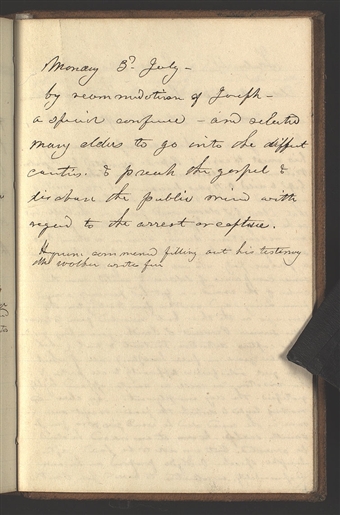 Monday 3d July —
by recommendation of Joseph —
a special confernce — and selected
many elders to go into the differt
counties. & preach the gospel &
disabuse the public mind with
regard to the arrest or capture.
Hyrum. commencd filling out his testimony